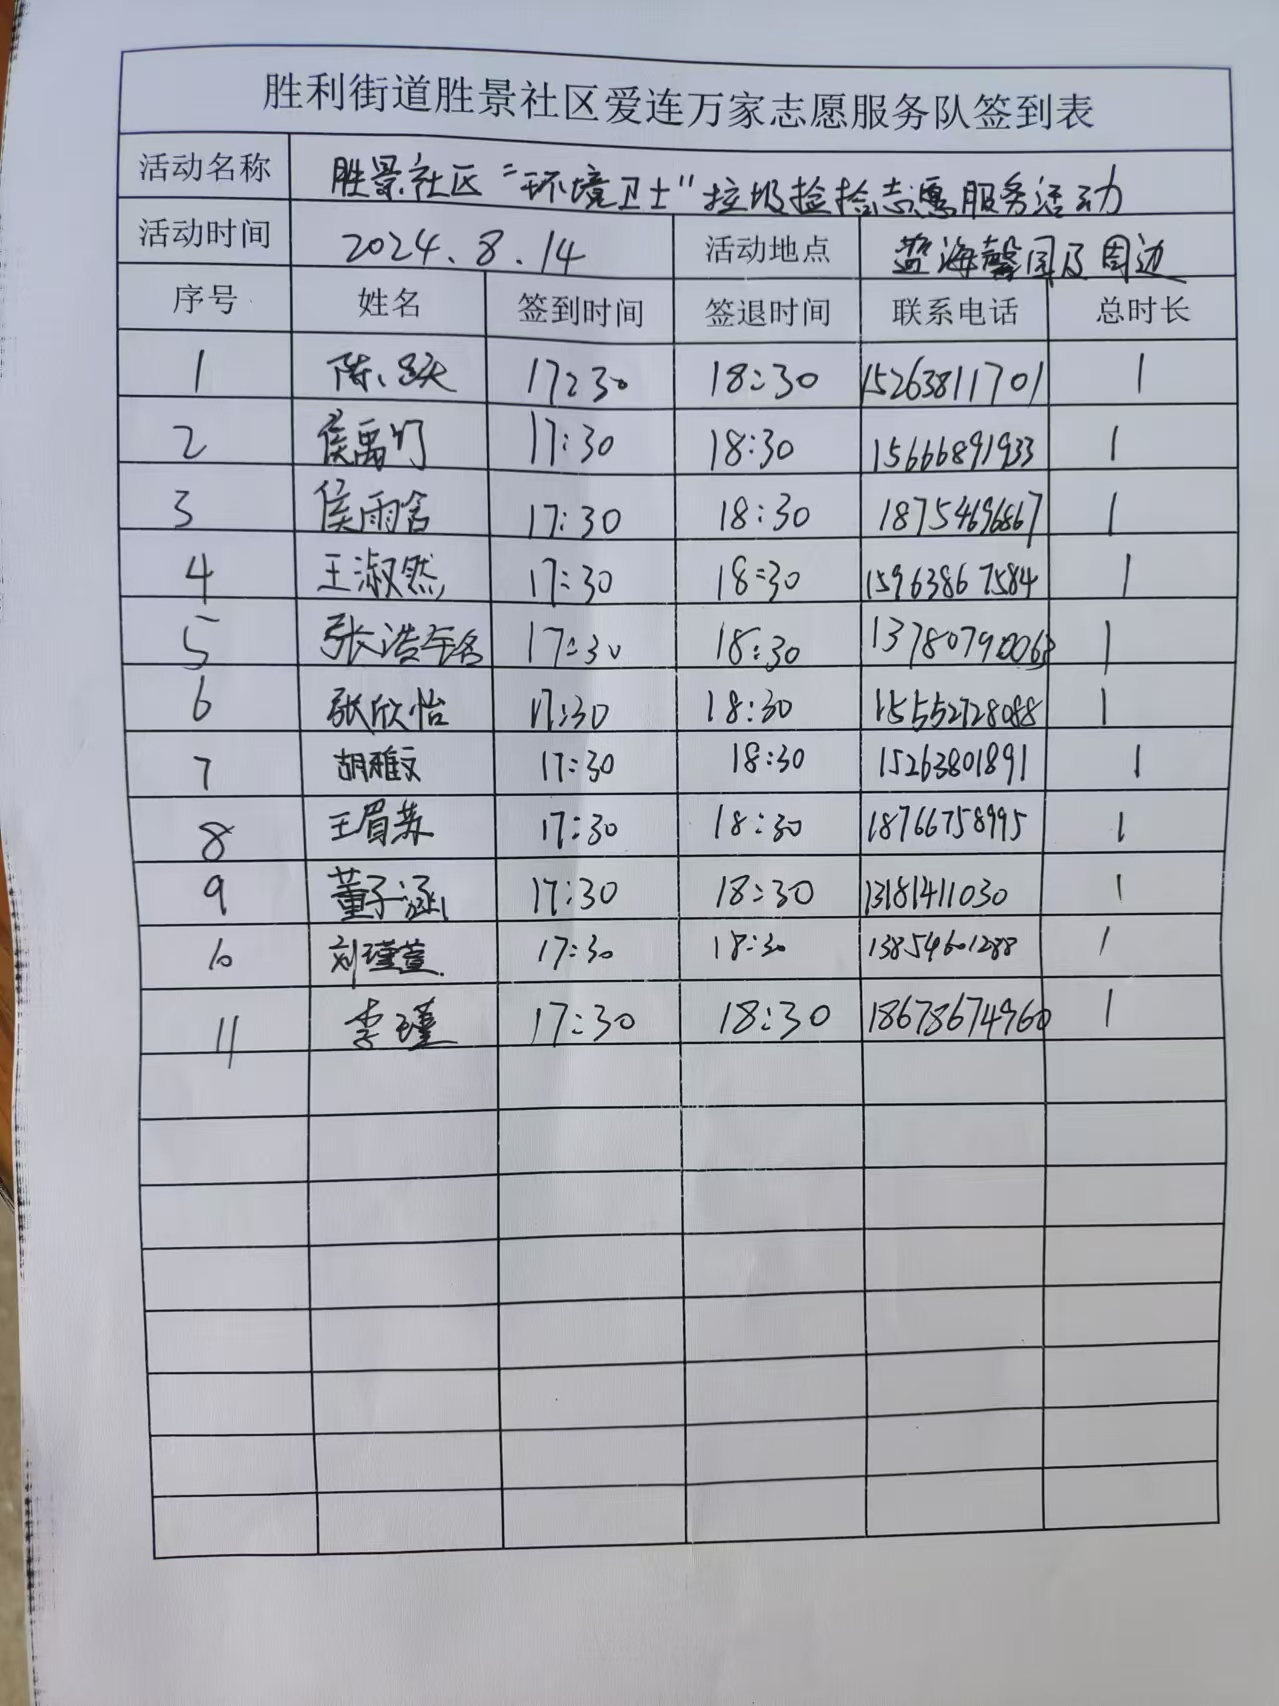 胜利街道胜景社区爱连万家志愿服务队签到表
活动名称 胜景社区“环境卫士”垃圾捡拾志愿服务活动
活动时间 2024.8.14 活动地点 蓝海馨园及周边
序号 姓名 签到时间 签退时间 联系电话 总时长
1 陈 17:30 18:30 15263811701 1
2 侯禹竹 17:30 18:30 15666891933 1
3 侯雨含 17:30 18:30 18754696867 1
4 王淑然 17:30 18:30 15963867584 1
5 张浩 17:30 18:30 1 
6 张欣怡 17:30 18:30 15552728088 1
7 胡雅文 17:30 18:30 15263801891 1
8 王眉苏 17:30 18:30 18766758995 1
9 董子涵 17:30 18:30 13181411030 1
10 刘瑾萱 17:30 18:30 13854601288 1
11 李瑾 17:30 18:30 18678674960 1